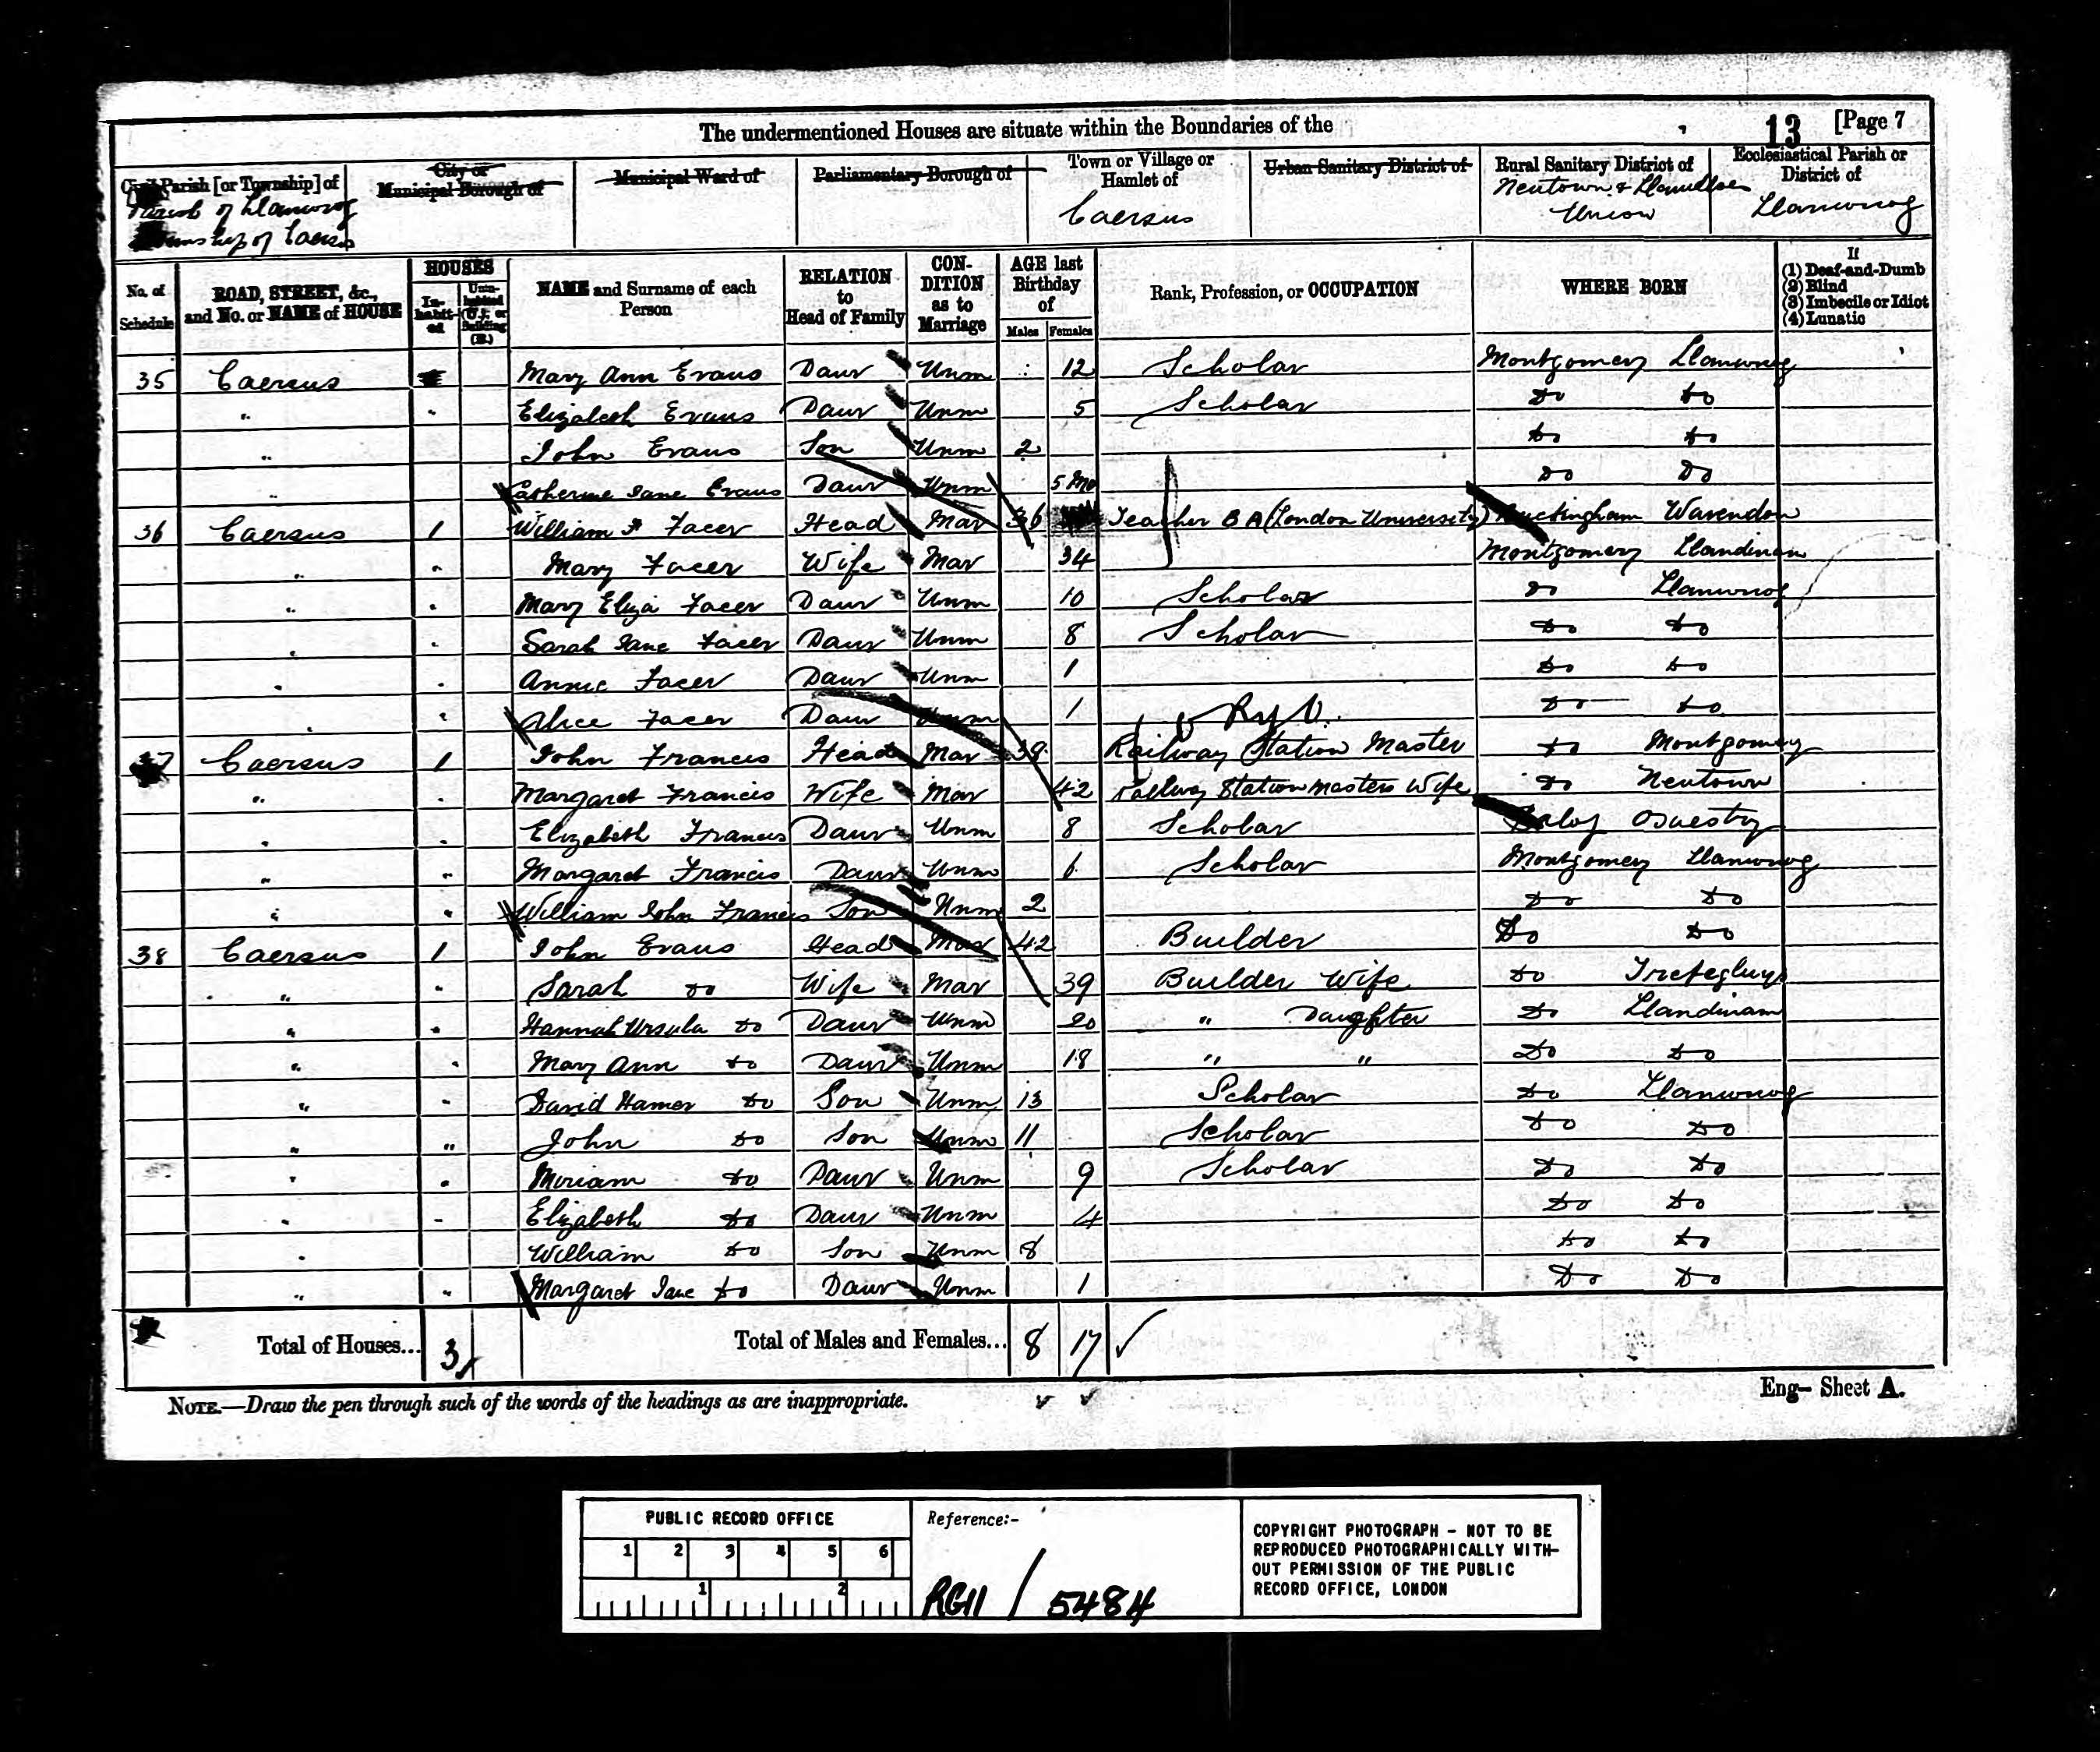 The undermentioned Houses are situate within the Boundaries of the
13 [Page 7
Civil Parish [or Township] of
Parish of Llanwnog
Township of Caersus
City or Municipal Borough of
Municipal Ward of
Parliamentary Borough of
Town or Village or Hamlet of
Caersus
Urban Sanitary District of
Rural Sanitary District of
Newtown & Llanidloes Union
Ecclesiastical Parish or District of
Llanwnog
No. of Schedule
ROAD, STREET, &c., and No. or NAME of HOUSE
HOUSES
In-habit-ed
Unin-habited (U.), or Building (B.)
NAME and Surname of each Person
RELATION to Head of Family
CON-DITION as to Marriage
AGE last Birthday of
Males Females
Rank, Profession, or OCCUPATION
WHERE BORN
If
(1) Deaf-and-Dumb
(2) Blind
(3) Imbecile or Idiot
(4) Lunatic
35 Caersus Mary Ann Evans Daur Unm 12 Scholar Montgomery Llanwnog
" " Elizabeth Evans Daur Unm 5 Scholar Do Do
" John Evans Son Unm 2 Do Do
" Catherine Jane Evans Daur Unm 5 Mo Do Do
36 Caersus 1 William F Facer Head Mar 36 Teacher B A (London University) Buckingham Wavendon
" " Mary Facer Wife Mar 34 Montgomery Llandinam
" " Mary Eliza Facer Daur Unm 10 Scholar Do Llanwnog
" " Sarah Jane Facer Daur Unm 8 Scholar Do Do
" " Annie Facer Daur Unm 1 Do Do
" " Alice Facer Daur Unm 1 Do Do
37 Caersus 1 John Francis Head Mar 39 Railway Station Master Do Montgomery
" " Margaret Francis Wife Mar 42 Railway Station masters Wife Do Newtown
" " Elizabeth Francis Daur Unm 8 Scholar Salop Oswestry
" " Margaret Francis Daur Unm 6 Scholar Montgomery Llanwnog
" " William John Francis Son Unm 2 Do Do
38 Caersus 1 John Evans Head Mar 42 Builder Do Do
" " Sarah Do Wife Mar 39 Builder Wife Do Trefeglwys
" " Hannah Ursula Do Daur Unm 20 " Daughter Do Llandinam
" " Mary Ann Do Daur Unm 18 " " Do Do
" " David Hamer Do Son Unm 13 Scholar Do Llanwnog
" " John Do Son Unm 11 Scholar Do Do
" " Miriam Do Daur Unm 9 Scholar Do Do
" " Elizabeth Do Daur Unm 4 Do Do
" William Do Son Unm 8 Do Do
" " Margaret Jane Do Daur Unm 1 Do Do
Total of Houses... 3
Total of Males and Females... 8 17
NOTE.—Draw the pen through such of the words of the headings as are inappropriate.
Eng— Sheet A.
PUBLIC RECORD OFFICE
1 2 3 4 5 6
1 2
Reference:-
RG11 / 5484
COPYRIGHT PHOTOGRAPH - NOT TO BE
REPRODUCED PHOTOGRAPHICALLY WITH-
OUT PERMISSION OF THE PUBLIC
RECORD OFFICE, LONDON